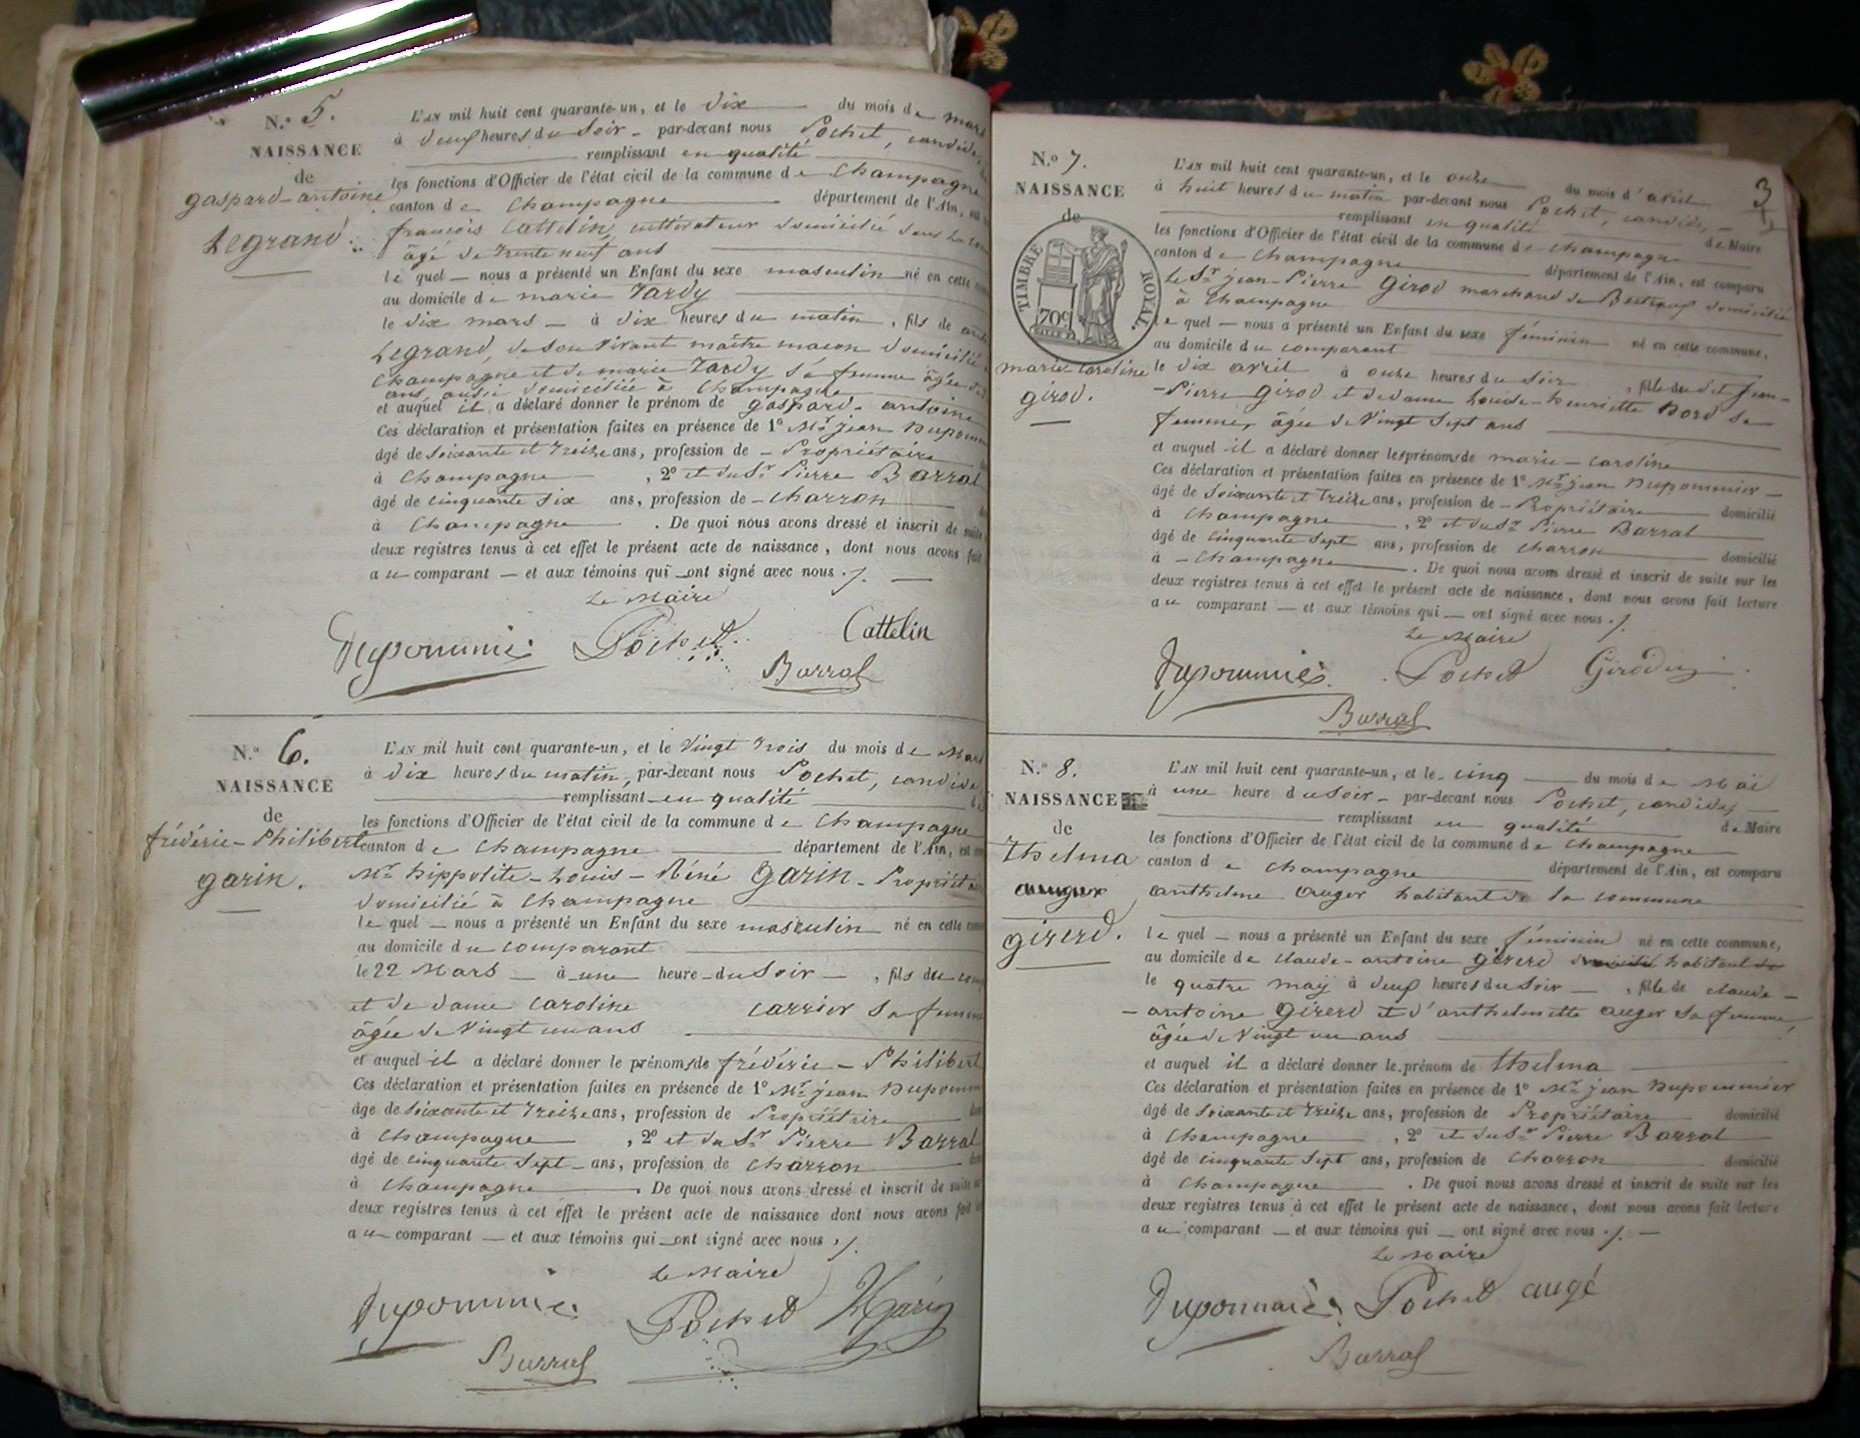 N.° 5.
NAISSANCE
de
gaspard-antoine
Legrand.
L'AN mil huit cent quarante-un, et le dix du mois de mars
à deux heures du soir par-devant nous Pochet, candide,
remplissant en qualité
les fonctions d'Officier de l'état civil de la commune de Champagne
canton de Champagne département de l'Ain,
françois Cattelin, cultivateur domicilié
âgé de trente neuf ans
le quel nous a présenté un Enfant du sexe masculin né en cette
au domicile de marie Tardy
le dix mars à dix heures du matin, fils de
Legrand, de son vivant maître maçon domicilié
Champagne et de marie Tardy sa femme âgée de
ans aussi domiciliée à Champagne
et auquel il a déclaré donner le prénom de gaspard-antoine
Ces déclaration et présentation faites en présence de 1° Mr. jean Dupommier
âgé de soixante et treize ans, profession de Propriétaire
à Champagne, 2° et du Sr. Pierre Barral
âgé de cinquante six ans, profession de charron
à Champagne. De quoi nous avons dressé et inscrit de suite
deux registres tenus à cet effet le présent acte de naissance, dont nous avons fait
au comparant et aux témoins qui ont signé avec nous ./.
Le Maire
Dupommier Pochet Cattelin
Barral
N.° 6.
NAISSANCE
de
frédéric-Philibert
garin.
L'AN mil huit cent quarante-un, et le vingt trois du mois de Mars
à dix heures du matin, par-devant nous Pochet, candide
remplissant en qualité
les fonctions d'Officier de l'état civil de la commune de Champagne
canton de Champagne département de l'Ain, est
Mr. hippolite-Louis-Réné garin Propriétaire
domicilié à Champagne
le quel nous a présenté un Enfant du sexe masculin né en cette
au domicile du comparant
le 22 Mars à une heure du soir, fils du
et de dame caroline carrier sa femme
âgée de vingt un ans
et auquel il a déclaré donner le prénoms de frédéric-Philibert
Ces déclaration et présentation faites en présence de 1° Mr. jean Dupommier
âgé de soixante et treize ans, profession de Propriétaire
à Champagne, 2° et du Sr. Pierre Barral
âgé de cinquante sept ans, profession de charron
à Champagne. De quoi nous avons dressé et inscrit de suite
deux registres tenus à cet effet le présent acte de naissance dont nous avons fait
au comparant et aux témoins qui ont signé avec nous ./.
Le Maire
Dupommier Pochet HGarin
Barral
3
N.° 7.
NAISSANCE
de
TIMBRE ROYAL.
70c
marie caroline
girod.
L'AN mil huit cent quarante-un, et le onze du mois d'avril
à huit heures du matin par-devant nous Pochet, candide,
remplissant en qualité de Maire
les fonctions d'Officier de l'état civil de la commune de Champagne
canton de Champagne département de l'Ain, est comparu
Le Sr. jean Pierre Girod marchand de Bestiaux domicilié
à Champagne
le quel nous a présenté un Enfant du sexe féminin né en cette commune,
au domicile du comparant
le dix avril à onze heures du soir, fille du dit jean-
-Pierre girod et de dame Louise-henriette Bord sa
femme, âgée de vingt sept ans
et auquel il a déclaré donner les prénoms de marie-caroline
Ces déclaration et présentation faites en présence de 1° Mr. jean Dupommier
âgé de soixante et treize ans, profession de Propriétaire domicilié
à Champagne, 2° et du Sr. Pierre Barral
âgé de cinquante sept ans, profession de charron domicilié
à Champagne. De quoi nous avons dressé et inscrit de suite sur les
deux registres tenus à cet effet le présent acte de naissance, dont nous avons fait lecture
au comparant et aux témoins qui ont signé avec nous ./.
Le Maire
Dupommier Pochet Girod
Barral
N.° 8.
NAISSANCE
de
thelma
girerd.
L'AN mil huit cent quarante-un, et le cinq du mois de Maï
à une heure du soir par-devant nous Pochet, candide,
remplissant en qualité de Maire
les fonctions d'Officier de l'état civil de la commune de Champagne
canton de Champagne département de l'Ain, est comparu
anthelme auger habitant de la commune
le quel nous a présenté un Enfant du sexe féminin né en cette commune,
au domicile de claude-antoine girerd habitant
le quatre maÿ à deux heures du soir, fille de claude-
-antoine girerd et d'anthelmette auger sa femme,
âgée de vingt un ans
et auquel il a déclaré donner le prénom de thelma
Ces déclaration et présentation faites en présence de 1° Mr. jean Dupommier
âgé de soixante et treize ans, profession de Propriétaire domicilié
à Champagne, 2° et du Sr. Pierre Barral
âgé de cinquante sept ans, profession de charron domicilié
à Champagne. De quoi nous avons dressé et inscrit de suite sur les
deux registres tenus à cet effet le présent acte de naissance, dont nous avons fait lecture
au comparant et aux témoins qui ont signé avec nous ./.
Le Maire
Dupommier Pochet augé
Barral